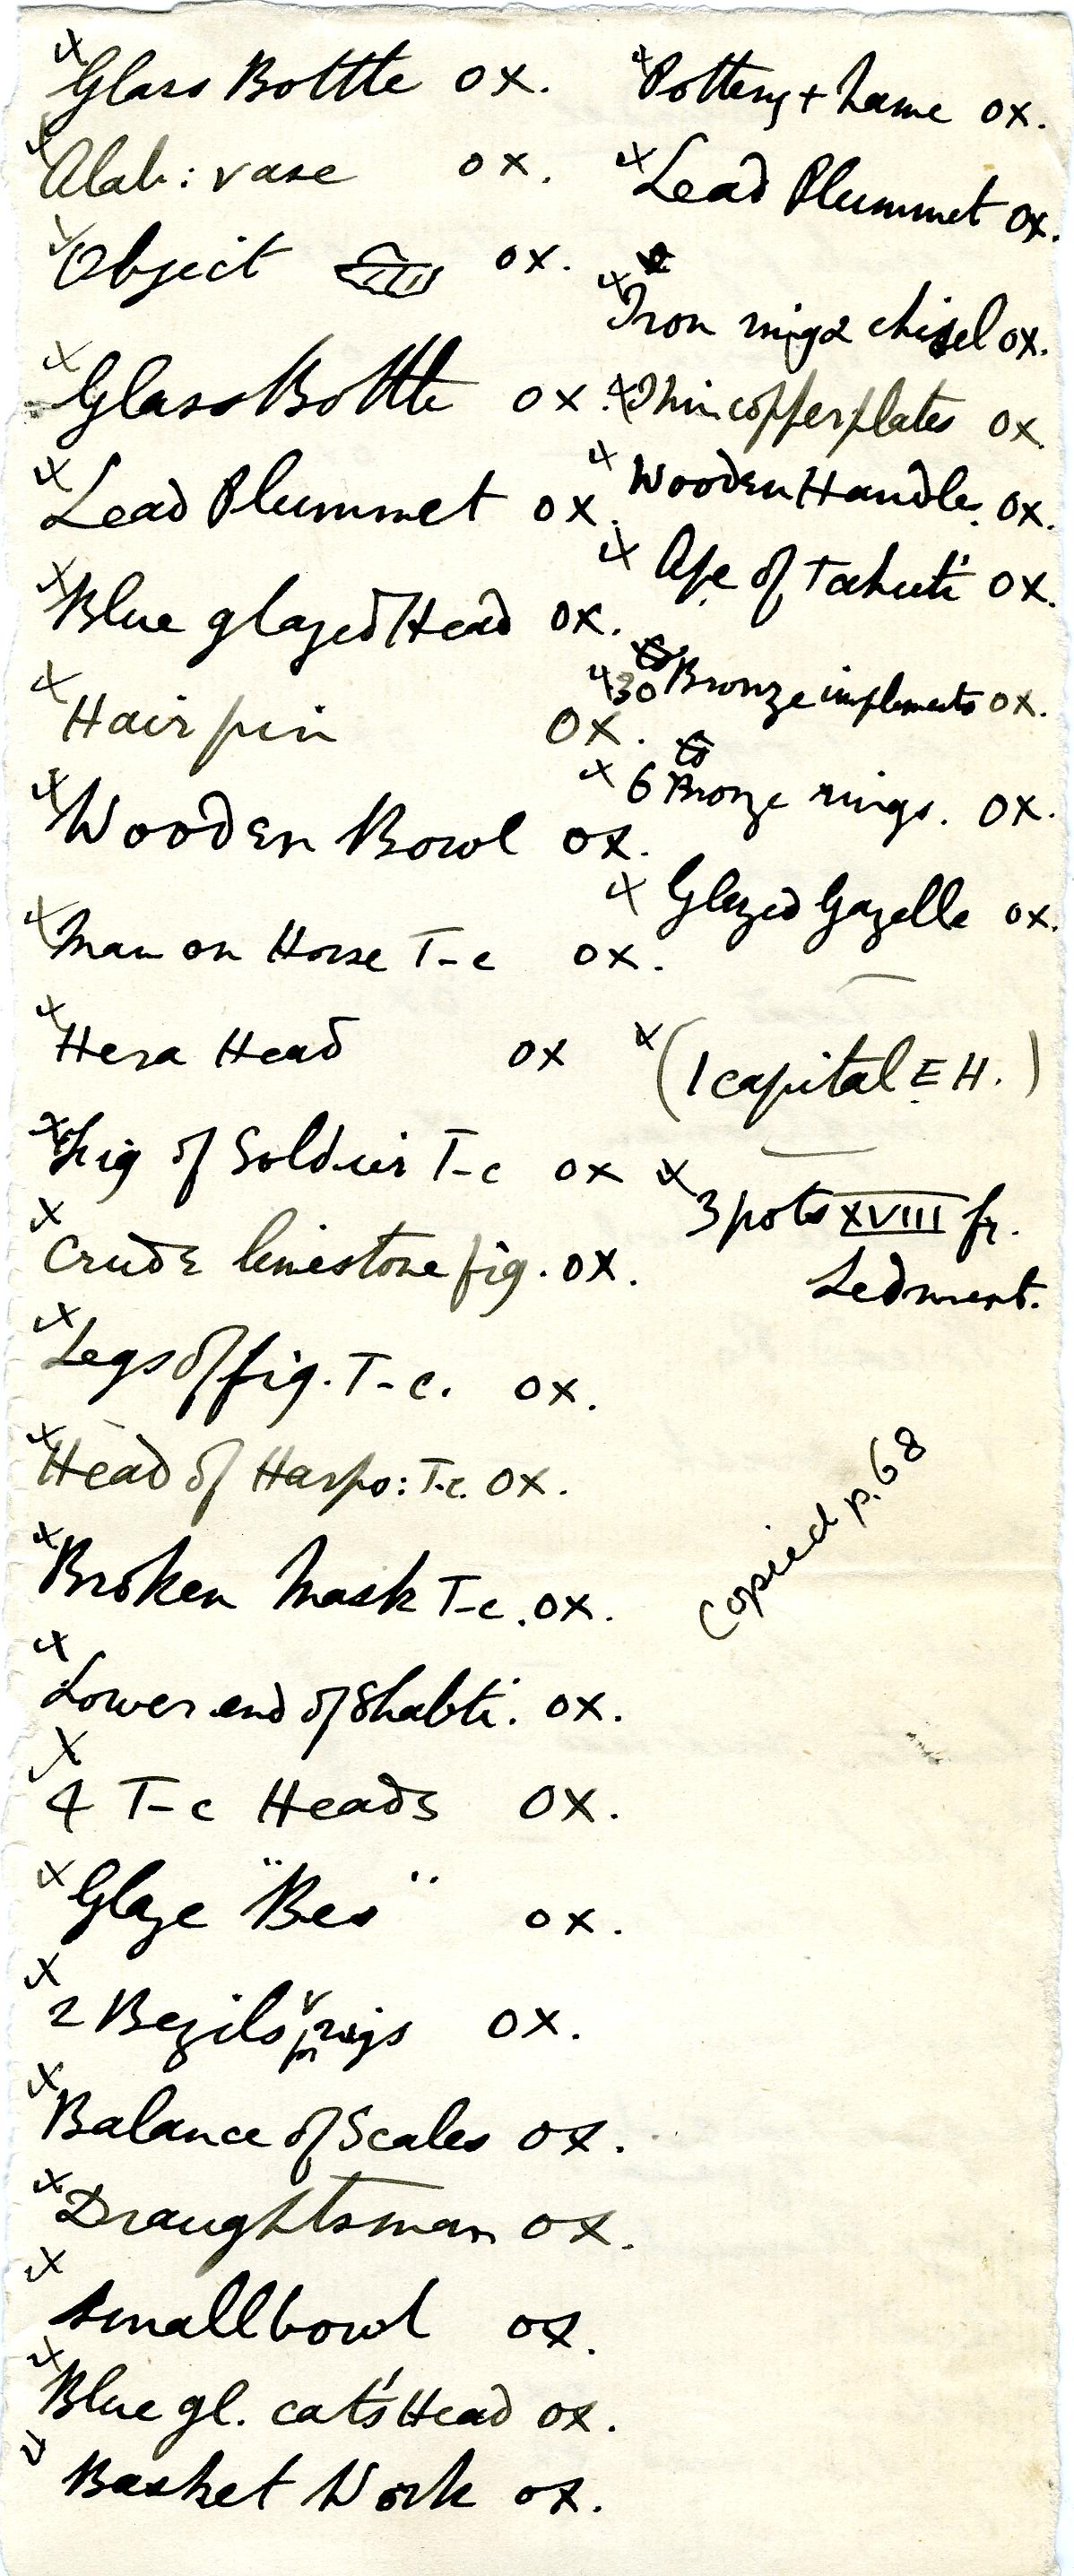 x Glass Bottle OX.
x Alab: vase OX.
x Object OX.
x Glass Bottle OX.
x Lead Plummet OX.
x Blue glazed Head OX.
x Hair pin OX.
x Wooden Bowl OX.
x Man on Horse T-c OX.
x Hera Head OX
x Fig of Soldier T-c OX
x Crude limestone fig. OX.
x Legs of fig. T-c. OX.
x Head of Harpo: T.c. OX.
x Broken Mask T-c. OX.
x Lower end of Shabti. OX.
x 4 T-c Heads OX.
x Glaze "Bes" OX.
x 2 Bezils for rings OX.
x Balance of Scales OX.
x Draughtsman OX.
x Small bowl OX.
x Blue gl. cat's Head OX.
x Basket Work OX.
x Pottery + name OX.
x Lead Plummet OX.
x Iron ring & chisel OX.
x Thin copper plates OX.
x Wooden Handle. OX.
x Ape of Tahuti OX.
x 30 Bronze implements OX.
x 6 Bronze rings. OX.
x Glazed Gazelle OX.
x (1 capital E.H.)
x 3 pots XVIII fr.
Sedment.
Copied p.68